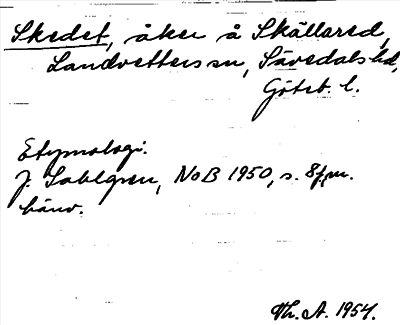 Skedet, åker å Skällared,
Landvetters sn, Sävedals hd,
Göteb. l.
Etymologi.
J. Sahlgren, NoB 1950, s. 8 f, m.
hänv.
Th. A. 1954.